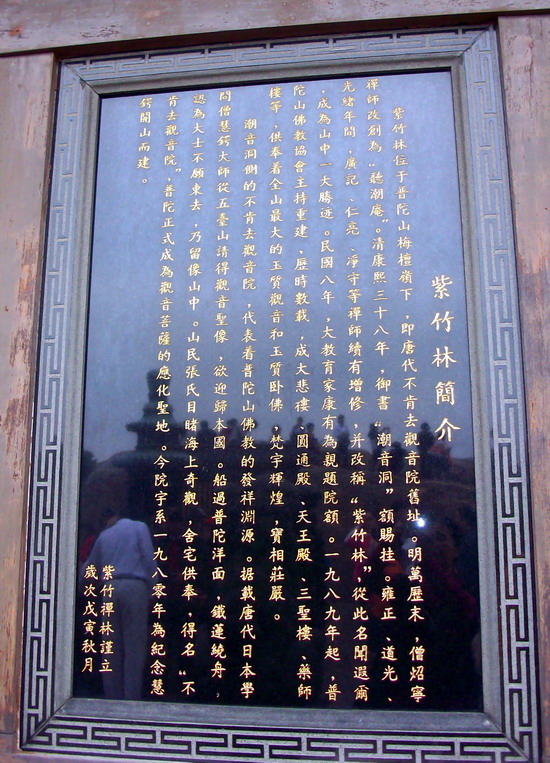 紫竹林簡介
紫竹林位于普陀山梅檀嶺下，即唐代不肯去觀音院舊址。明萬歷末，僧炤寧
禪師改創為“聽潮庵”。清康熙三十八年，御書“潮音洞”額賜挂。雍正、道光、
光緒年間，廣記、仁亮、淨守等禪師續有增修，并改稱“紫竹林”，從此名聞遐爾
，成為山中一大勝迹。民國八年，大教育家康有為親題院額。一九八九年起，普
陀山佛教協會主持重建，歷時數載，成大悲樓、圓通殿、天王殿、三聖樓、藥師
樓等，供奉着全山最大的玉質觀音和玉質卧佛，梵宇輝煌，寶相莊嚴。
潮音洞側的不肯去觀音院，代表着普陀山佛教的發祥淵源。据載唐代日本學
問僧慧鍔大師從五臺山請得觀音聖像，欲迎歸本國。船過普陀洋面，鐵蓮繞舟，
認為大士不願東去，乃留像山中。山民張氏目睹海上奇觀，舍宅供奉，得名“不
肯去觀音院”，普陀正式成為觀音菩薩的應化聖地。今院宇系一九八零年為紀念慧
鍔開山而建。
紫竹禪林謹立
歲次戊寅秋月